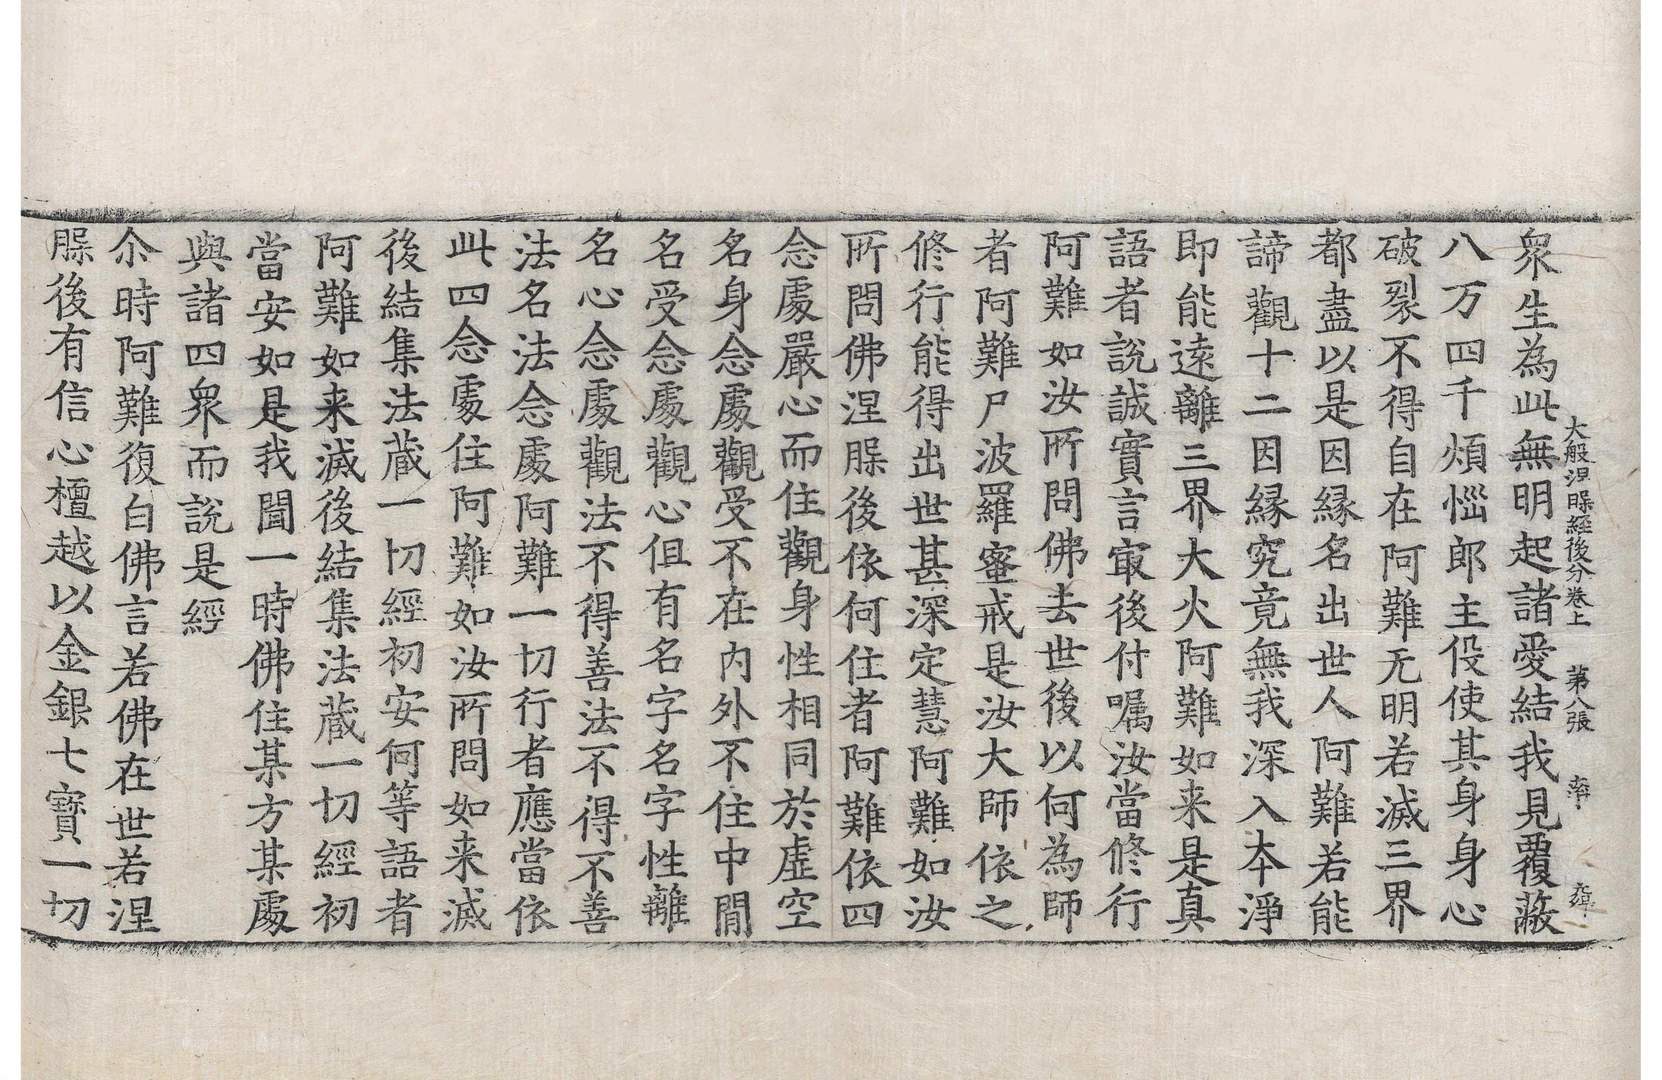 大般涅槃經後分卷上　第八張　率
衆生為此無明起諸愛結我見覆蔽
八万四千煩惱郎主役使其身身心
破裂不得自在阿難无明若滅三界
都盡以是因縁名出世人阿難若能
諦觀十二因縁究竟無我深入本淨
即能遠離三界大火阿難如来是真
語者說誠實言冣後付囑汝當修行
阿難如汝所問佛去世後以何為師
者阿難尸波羅蜜戒是汝大師依之
修行能得出世甚深定慧阿難如汝
所問佛涅槃後依何住者阿難依四
念處嚴心而住觀身性相同於虛空
名身念處觀受不在內外不住中間
名受念處觀心但有名字名字性離
名心念處觀法不得善法不得不善
法名法念處阿難一切行者應當依
此四念處住阿難如汝所問如来滅
後結集法藏一切經初安何等語者
阿難如来滅後結集法藏一切經初
當安如是我聞一時佛住某方某處
與諸四衆而說是經
尒時阿難復白佛言若佛在世若涅
槃後有信心檀越以金銀七寶一切